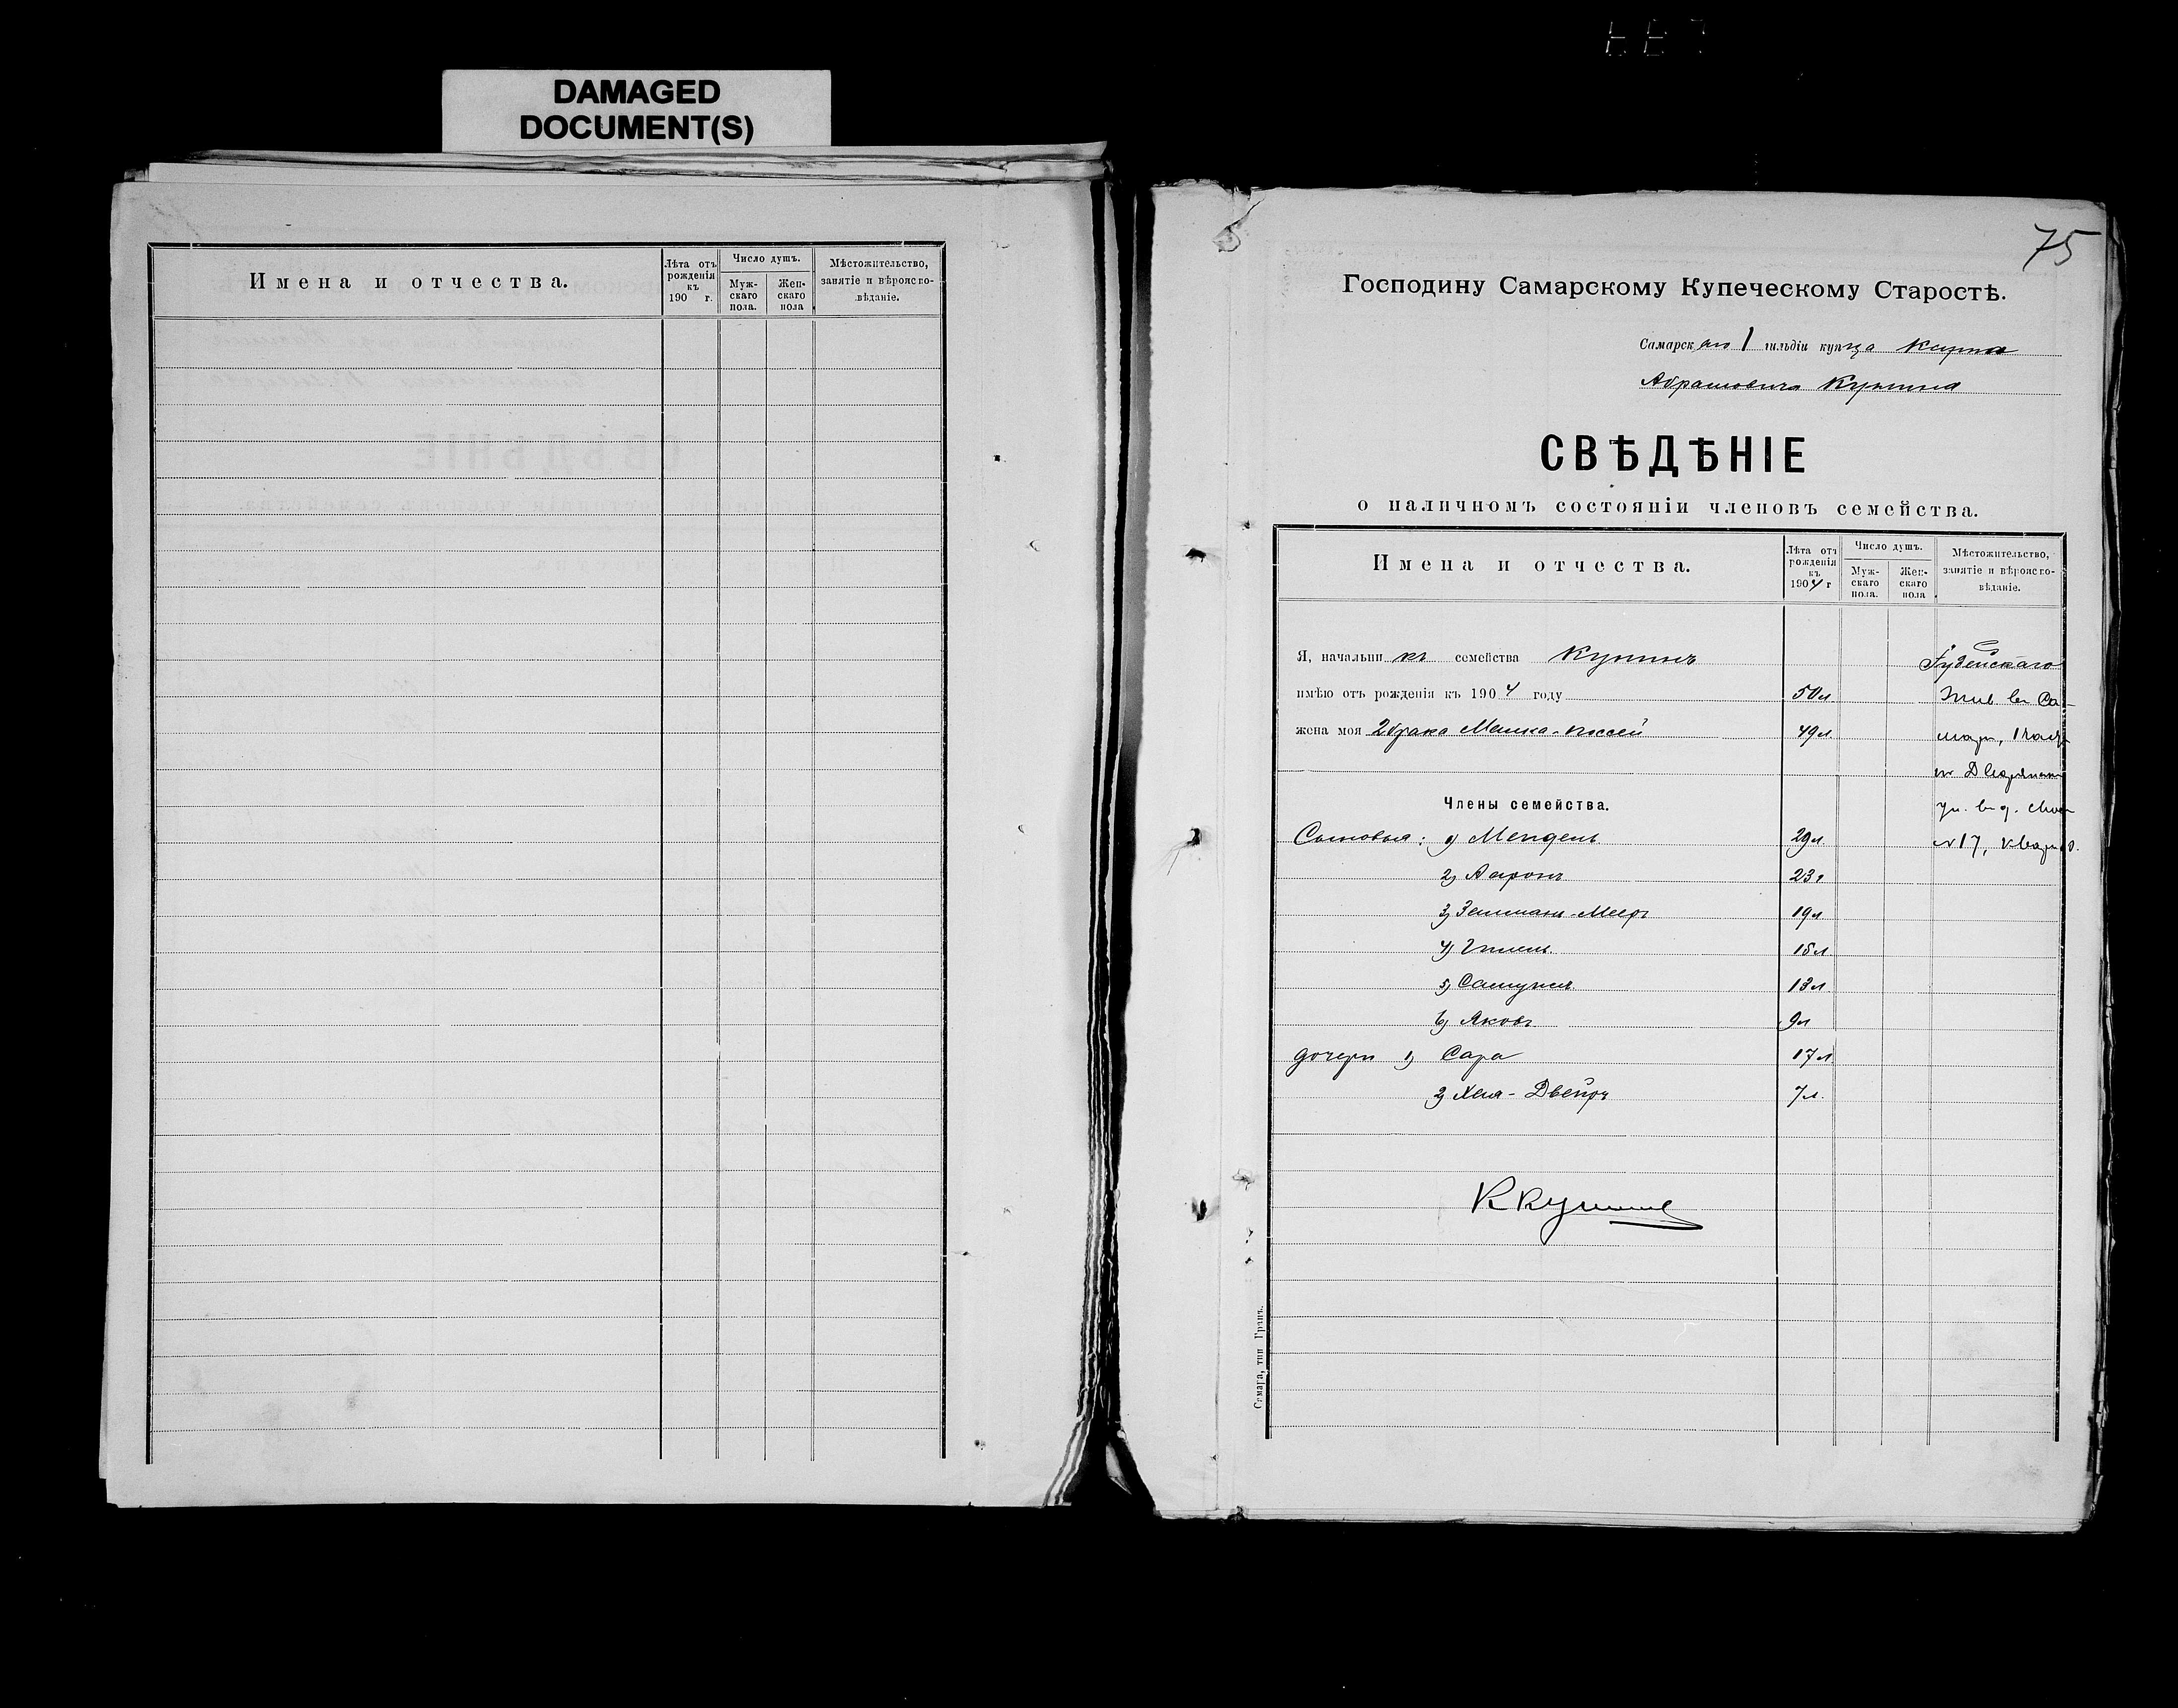 DAMAGED
DOCUMENT(S)
Имена и отчества.
Лѣта отъ рожденія къ 190 г.
Число душъ.
Мужскаго пола.
Женскаго пола
Мѣстожительство, занятіе и вѣроисповѣданіе.
75
Господину Самарскому Купеческому Старостѣ.
Самарскаго 1 гильдіи купца
Абрамовича Кунина
СВѢДѢНІЕ
о наличномъ состояніи членовъ семейства.
Имена и отчества.
Лѣта отъ рожденія къ 1904 г
Число душъ.
Мужскаго пола.
Женскаго пола
Мѣстожительство, занятіе и вѣроисповѣданіе.
Я, начальникъ семейства Кунинъ Іудейскаго
имѣю отъ рожденія къ 1904 году 50 л Жив въ Са-
жена моя 2 брака 49 л мар, 1 част
по Дворянск
Члены семейства.
ул. въ д.
Сыновья: 1) Мендель 29 л. №17, кварт.
2) Ааронъ 23
3) Залманъ-Меер 19 л
4) 15 л
5) Самуилъ 13 л
6) Яковъ 9 л
дочери 1) Сара 17 л
2) Хая-Двейра 7 л.
К Кунинъ
Самара, тип Гранъ.